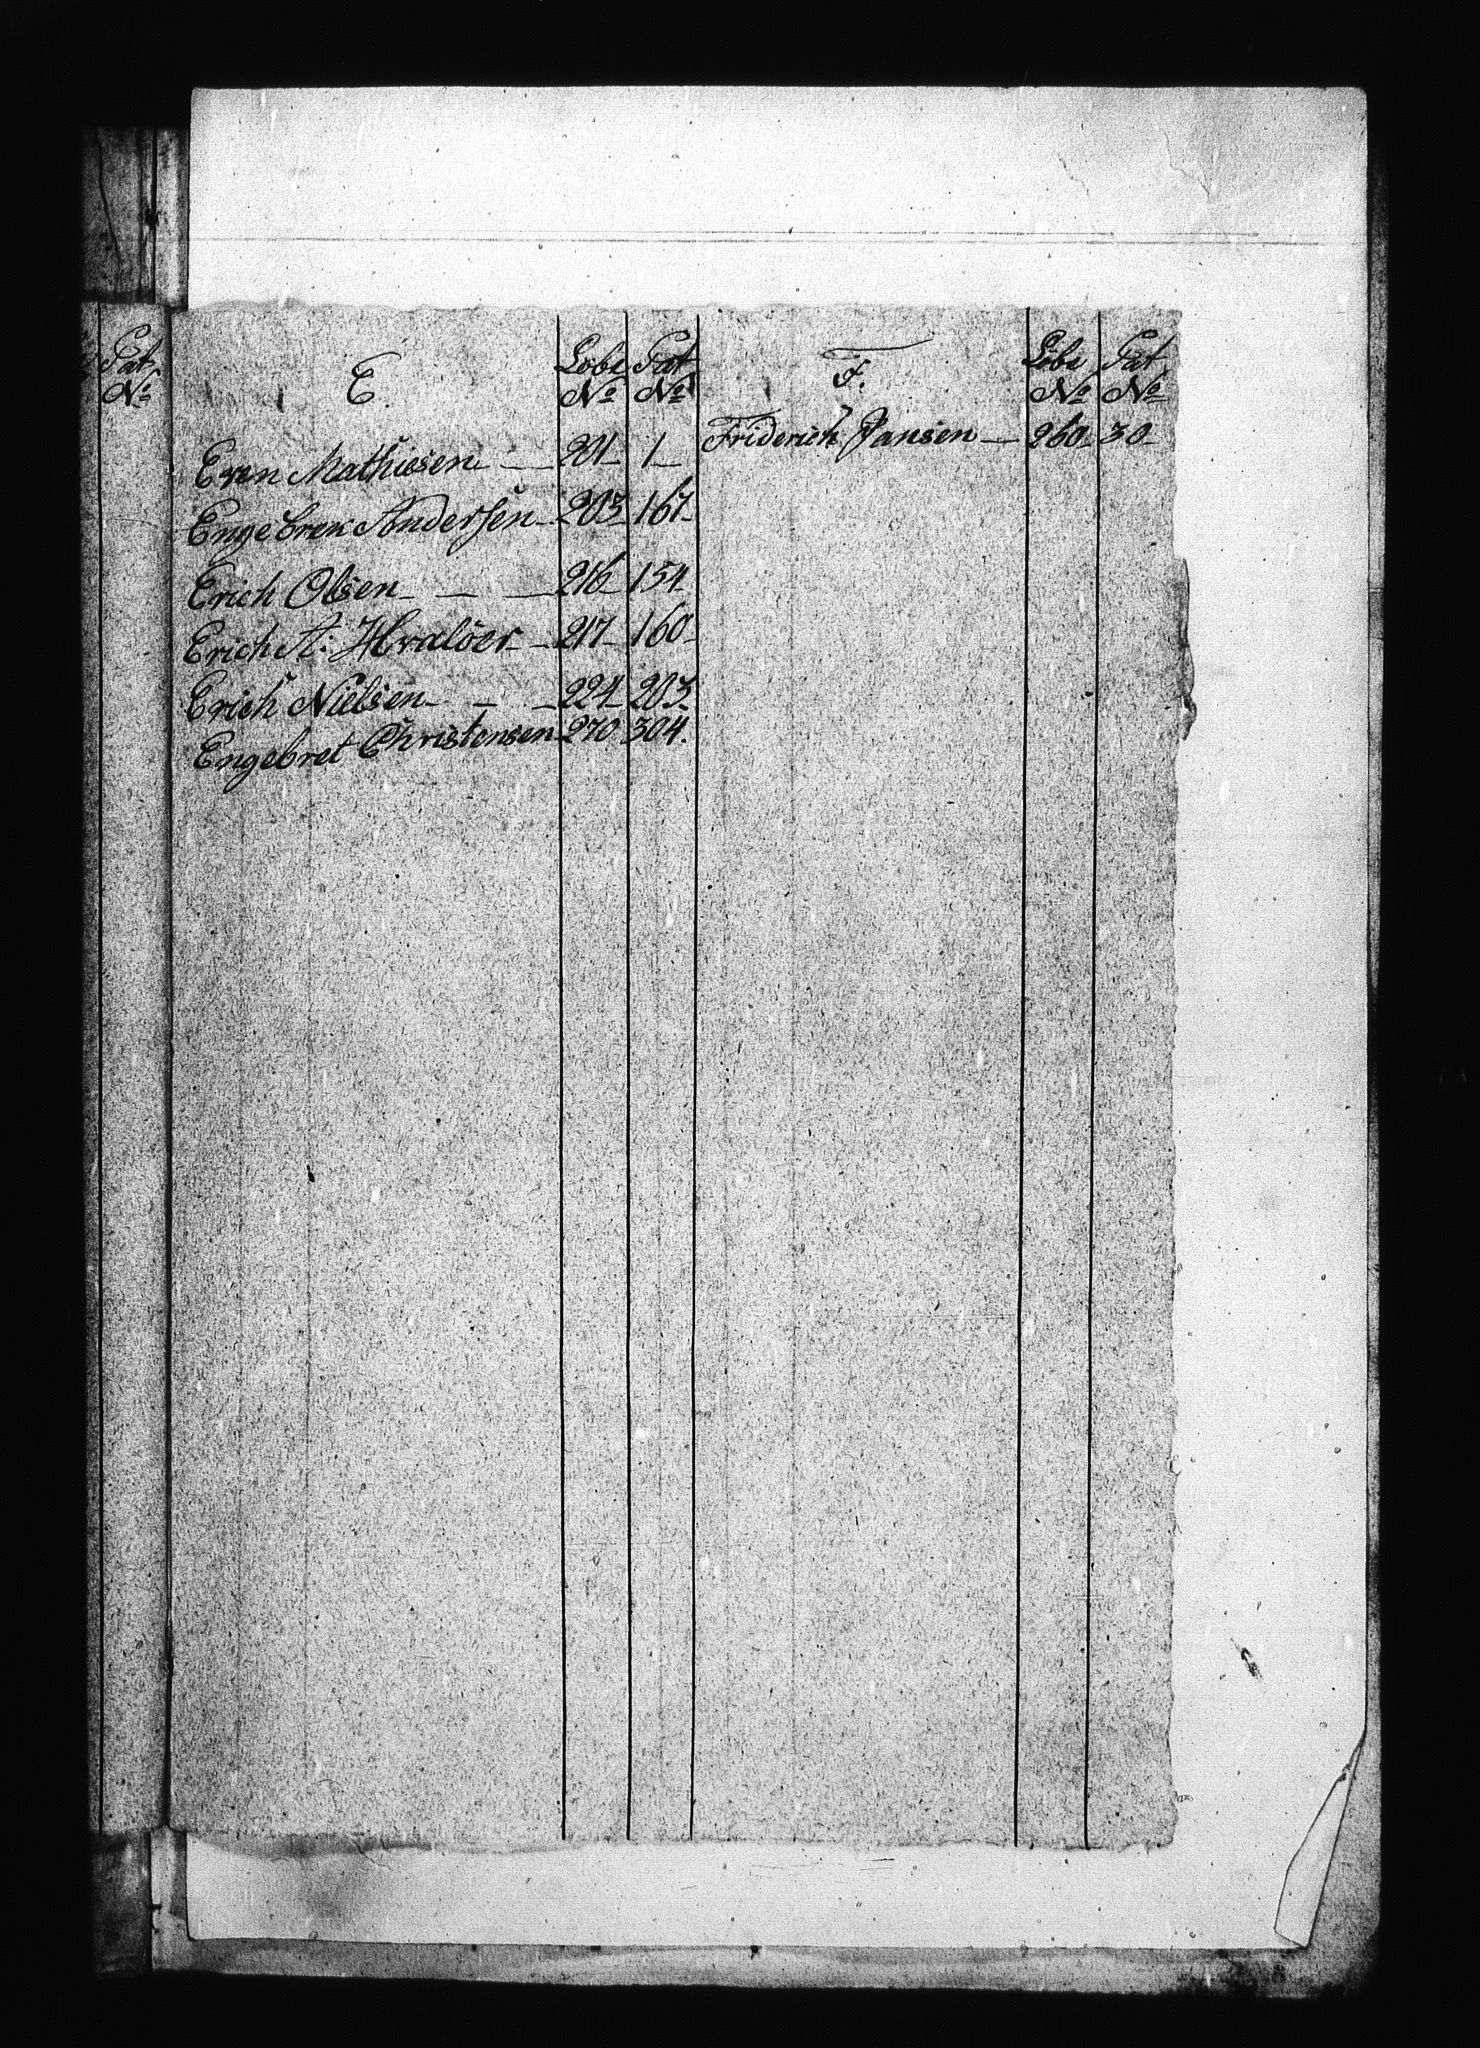 Pat
No
E.
Löbe Pat
No No
Even Mathiesen 201 1
Engebret Andersen 203 167
Erich Olsen 216 154
Erich A: Hvalöer 217 160
Erich Nielsen 224 203
Engebret Christensen 270 304.
F.
Löbe Pat
No No
Friderich Jansen 260 30